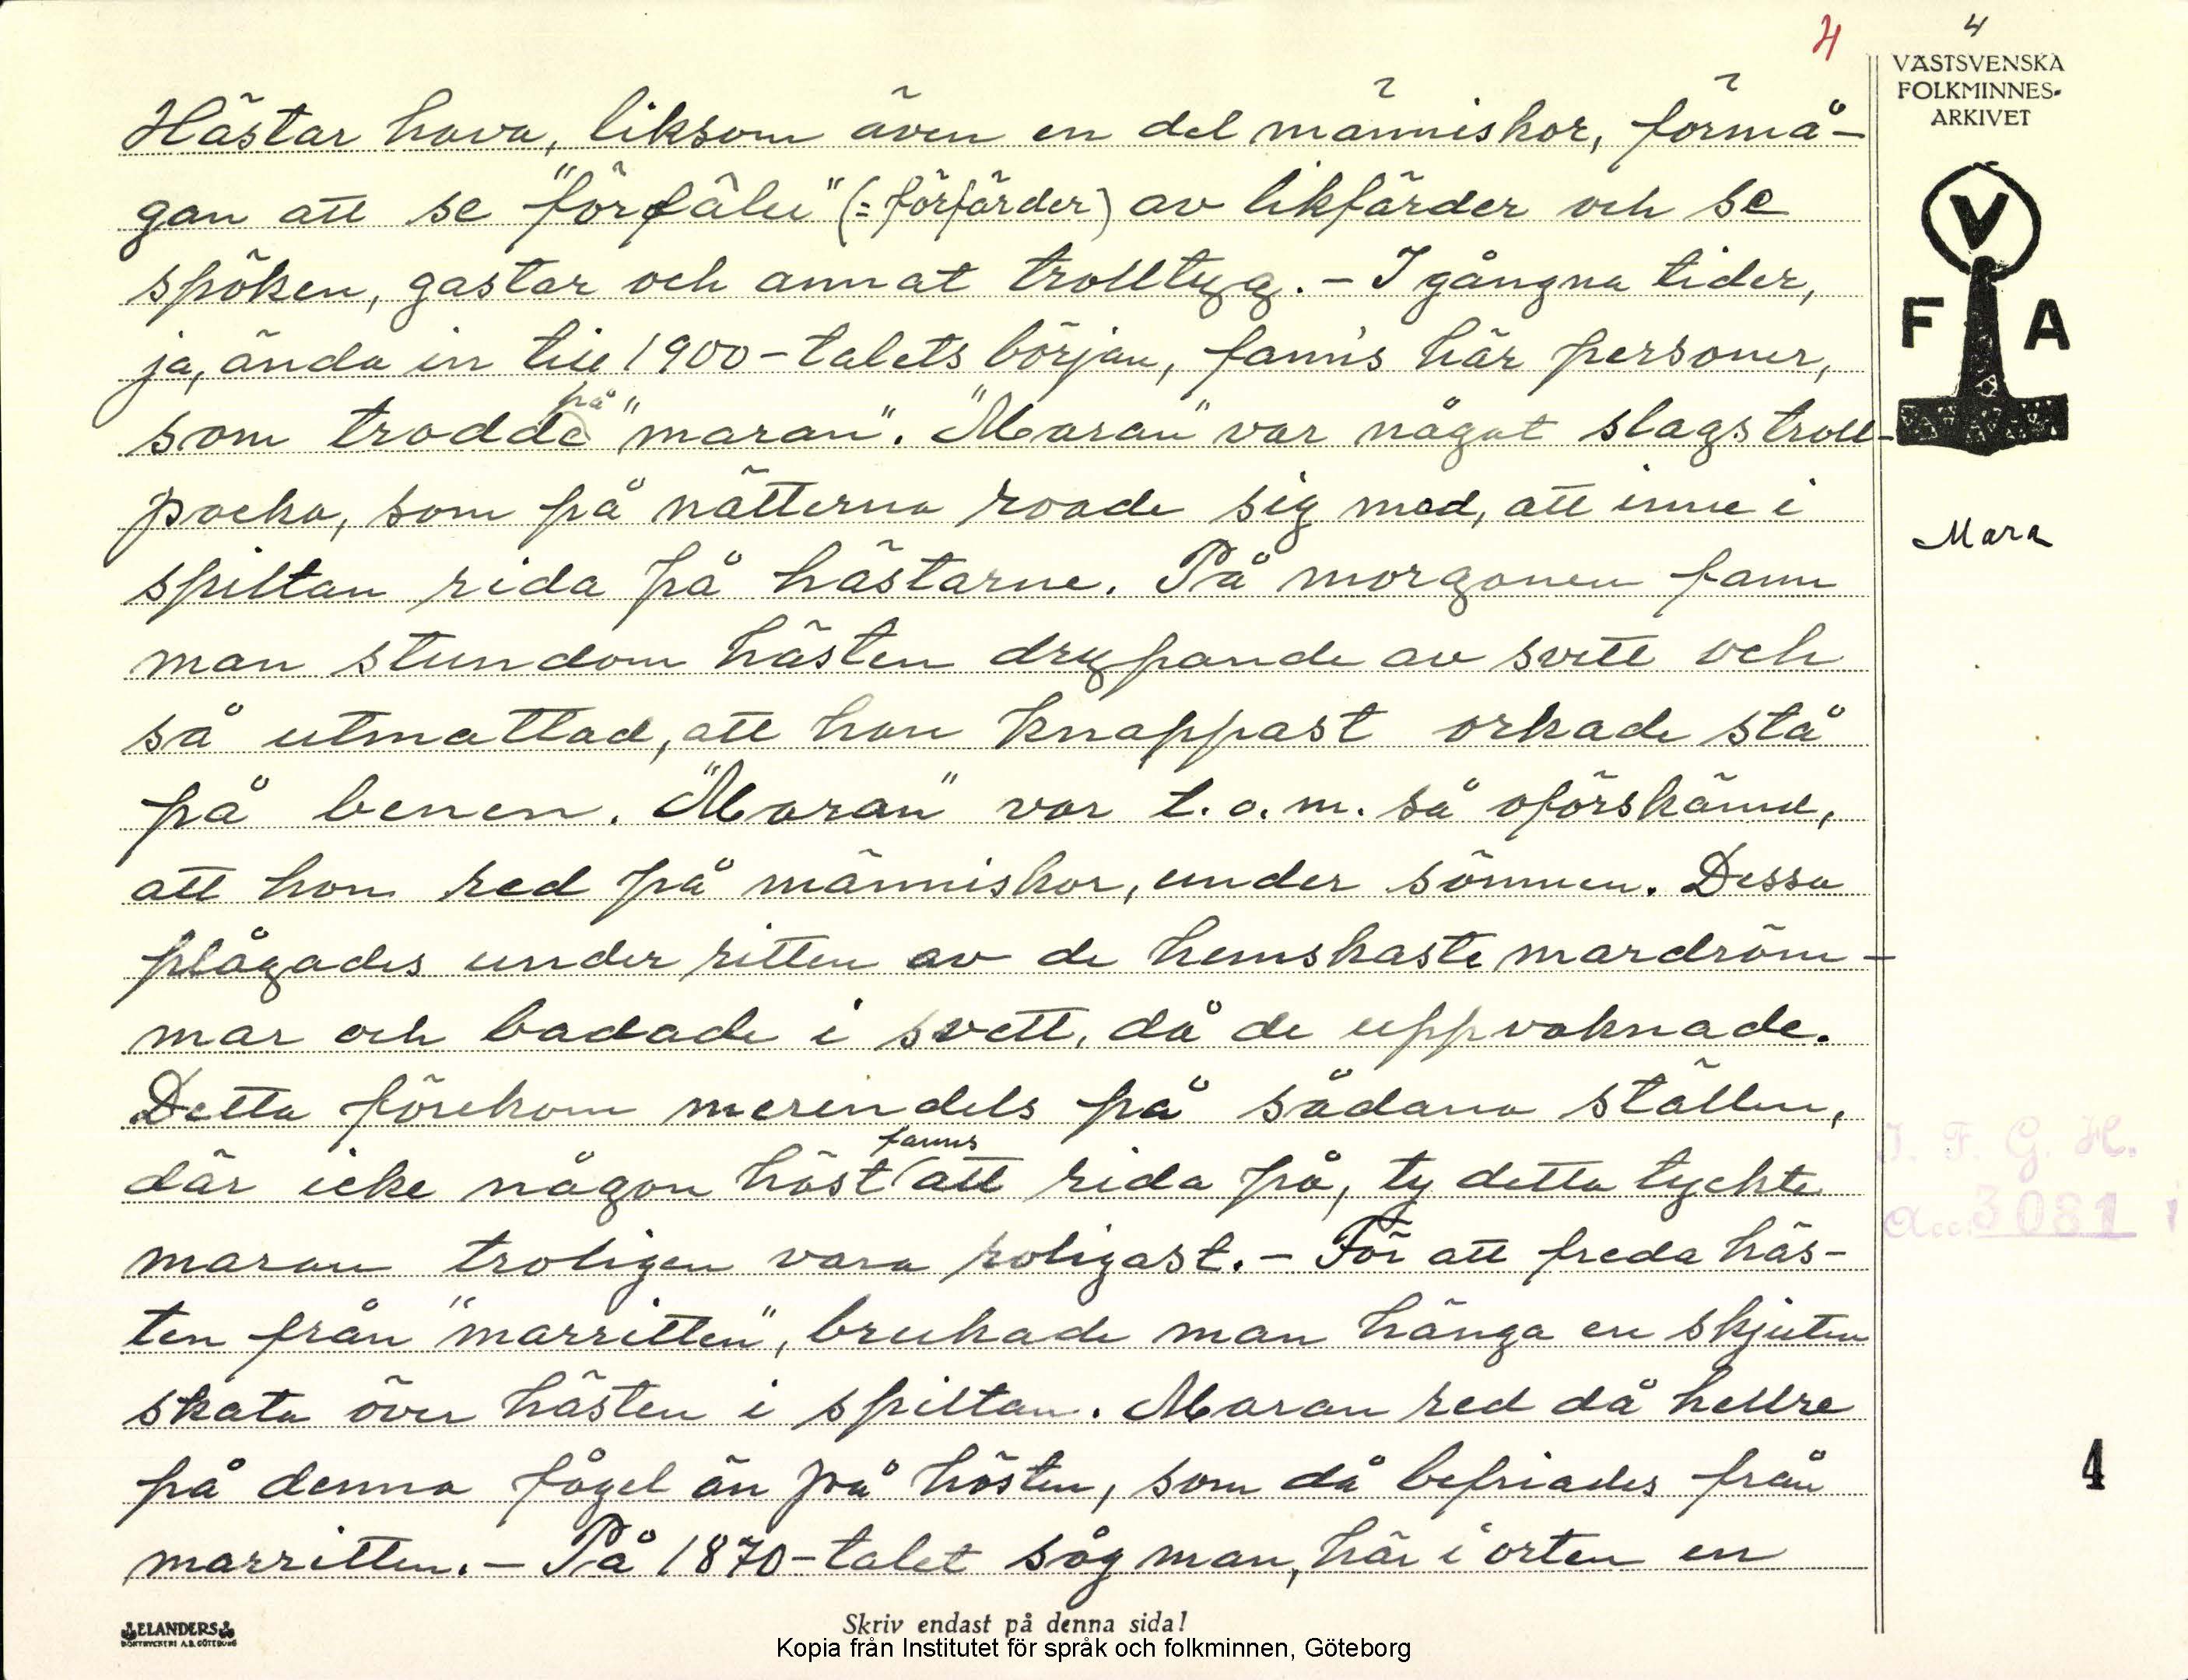 4
4
VÄSTSVENSKA
FOLKMINNES-
ARKIVET
V
F A
Hästar hava, liksom även en del människor, förmå-
gan att se "förfälu" (= förfärder) av likfärder och se
spöken, gastar och annat trolltyg. – I gångna tider,
ja, ända in till 1900-talets början, fanns här personer,
som trodde på "maran". "Maran" var något slags troll-
pocka, som på nätterna roade sig med, att inne i
Mara
spiltan rida på hästarne. På morgonen fann
man stundom hästen drypande av svett och
så utmattad, att han knappast orkade stå
på benen. "Maran" var t.o.m. så oförskämd,
att hon red på människor, under sömnen. Dessa
plågades under ritten av de hemskaste mardröm-
mar och badade i svett, då de uppvaknade.
Detta förekom merendels på sådana ställen,
där icke någon häst fanns att rida på, ty detta tyckte
I. F. G. H.
Acc. 3081
maran troligen vara roligast. – För att freda häs-
ten från "marritten", brukade man hänga en skjuten
skata över hästen i spiltan. Maran red då hellre
på denna fågel än på hästen, som då befriades från
4
marritten. – På 1870-talet såg man, här i orten en
ELANDERS
BOKTRYCKERI A.B. GÖTEBORG
Skriv endast på denna sida!
Kopia från Institutet för språk och folkminnen, Göteborg